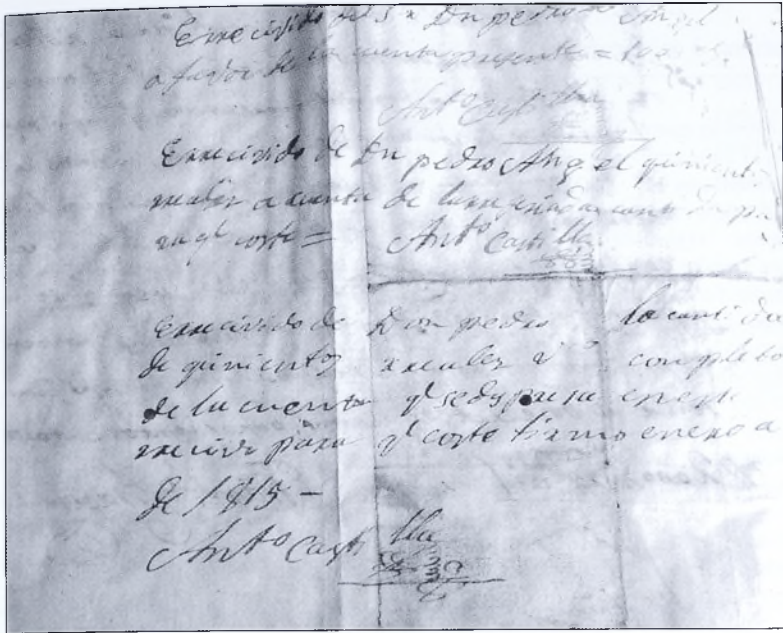 Errecivido del Sr Dn pedro Angel
a favor de la cuenta presente = 
Anto Castilla
Errecivido de Dn pedro Angel quinient
reales a cuenta de
ra ql coste = Anto Castilla
Errecivido de Don pedro la cantida
de quinientos rreales vn completo
de la cuenta ql se
rrecivi para ql coste firmo enero a
de 1815 -
Anto Castilla